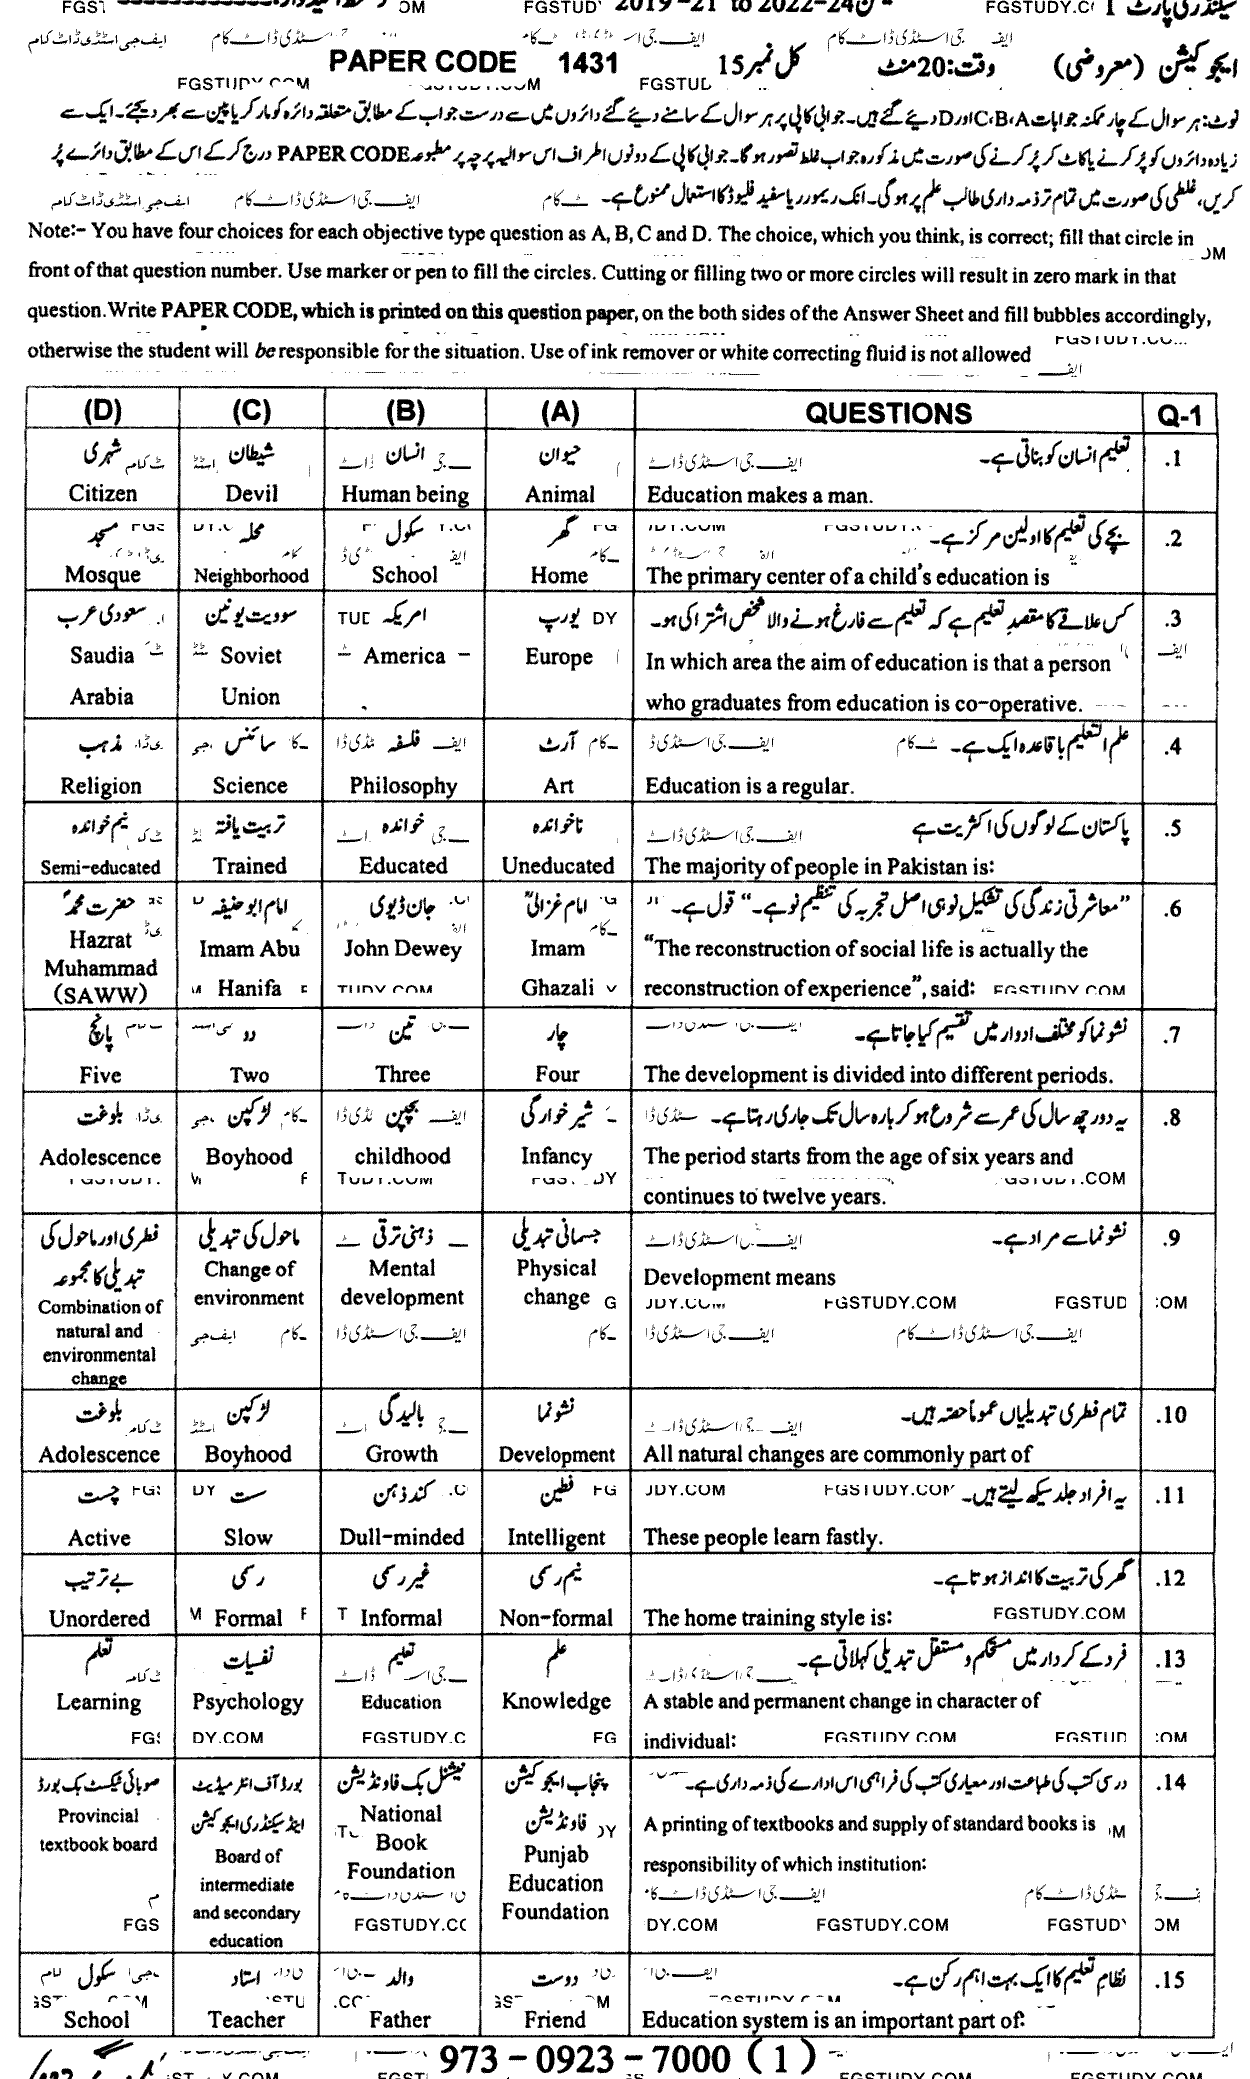 سیکنڈری پارٹ I 2019-21 to 2022-24
PAPER CODE 1431
ایجوکیشن (معروضی) وقت:20 منٹ کل نمبر 15
نوٹ: ہر سوال کے چار ممکنہ جوابات C،B،A اور D دیئے گئے ہیں۔ جوابی کاپی پر ہر سوال کے سامنے دیئے گئے دائروں میں سے درست جواب کے مطابق متعلقہ دائرہ کو مارکر یا پین سے بھر دیجئے۔ ایک سے
زیادہ دائروں کو پُر کرنے یا کاٹ کر پُر کرنے کی صورت میں مذکورہ جواب غلط تصور ہو گا۔ جوابی کاپی کے دونوں اطراف اس سوالیہ پرچہ پر مطبوعہ PAPER CODE درج کر کے اس کے مطابق دائرے پُر
کریں، غلطی کی صورت میں تمام تر ذمہ داری طالب علم پر ہو گی۔ انک ریموور یا سفید فلیوڈ کا استعمال ممنوع ہے۔
Note:- You have four choices for each objective type question as A, B, C and D. The choice, which you think, is correct; fill that circle in
front of that question number. Use marker or pen to fill the circles. Cutting or filling two or more circles will result in zero mark in that
question.Write PAPER CODE, which is printed on this question paper, on the both sides of the Answer Sheet and fill bubbles accordingly,
otherwise the student will be responsible for the situation. Use of ink remover or white correcting fluid is not allowed
(D) (C) (B) (A) QUESTIONS Q-1
شہری شیطان انسان حیوان تعلیم انسان کو بناتی ہے۔ .1
Citizen Devil Human being Animal Education makes a man.
مسجد محلہ سکول گھر بچے کی تعلیم کا اولین مرکز ہے۔ .2
Mosque Neighborhood School Home The primary center of a child's education is
سعودی عرب سوویت یونین امریکہ یورپ کس علاقے کا مقصدِ تعلیم ہے کہ تعلیم سے فارغ ہونے والا شخص اشتراکی ہو۔ .3
Saudia Soviet America Europe In which area the aim of education is that a person
Arabia Union who graduates from education is co-operative.
مذہب سائنس فلسفہ آرٹ علم التعلیم باقاعدہ ایک ہے۔ .4
Religion Science Philosophy Art Education is a regular.
نیم خواندہ تربیت یافتہ خواندہ ناخواندہ پاکستان کے لوگوں کی اکثریت ہے .5
Semi-educated Trained Educated Uneducated The majority of people in Pakistan is:
حضرت محمدؐ امام ابو حنیفہ جان ڈیوی امام غزالیؒ "معاشرتی زندگی کی تشکیلِ نو ہی اصل تجربہ کی تنظیمِ نو ہے۔" قول ہے۔ .6
Hazrat Muhammad (SAWW) Imam Abu Hanifa John Dewey Imam Ghazali "The reconstruction of social life is actually the
reconstruction of experience", said:
پانچ دو تین چار نشوونما کو مختلف ادوار میں تقسیم کیا جاتا ہے۔ .7
Five Two Three Four The development is divided into different periods.
بلوغت لڑکپن بچپن شیر خوارگی یہ دور چھ سال کی عمر سے شروع ہو کر بارہ سال تک جاری رہتا ہے۔ .8
Adolescence Boyhood childhood Infancy The period starts from the age of six years and
continues to twelve years.
فطری اور ماحول کی تبدیلی کا مجموعہ ماحول کی تبدیلی ذہنی ترقی جسمانی تبدیلی نشوونما سے مراد ہے۔ .9
Combination of natural and environmental change Change of environment Mental development Physical change Development means
بلوغت لڑکپن بالیدگی نشوونما تمام فطری تبدیلیاں عموماً حصہ ہیں۔ .10
Adolescence Boyhood Growth Development All natural changes are commonly part of
چست ست کند ذہن فطین یہ افراد جلد سیکھ لیتے ہیں۔ .11
Active Slow Dull-minded Intelligent These people learn fastly.
بے ترتیب رسمی غیر رسمی نیم رسمی گھر کی تربیت کا انداز ہوتا ہے۔ .12
Unordered Formal Informal Non-formal The home training style is:
تعلم نفسیات تعلیم علم فرد کے کردار میں مستحکم و مستقل تبدیلی کہلاتی ہے۔ .13
Learning Psychology Education Knowledge A stable and permanent change in character of
individual:
صوبائی ٹیکسٹ بک بورڈ بورڈ آف انٹرمیڈیٹ اینڈ سیکنڈری ایجوکیشن نیشنل بک فاؤنڈیشن پنجاب ایجوکیشن فاؤنڈیشن درسی کتب کی طباعت اور معیاری کتب کی فراہمی اس ادارے کی ذمہ داری ہے۔ .14
Provincial textbook board Board of intermediate and secondary education National Book Foundation Punjab Education Foundation A printing of textbooks and supply of standard books is
responsibility of which institution:
سکول استاد والد دوست نظامِ تعلیم کا ایک بہت اہم رکن ہے۔ .15
School Teacher Father Friend Education system is an important part of:
973-0923-7000 (1)